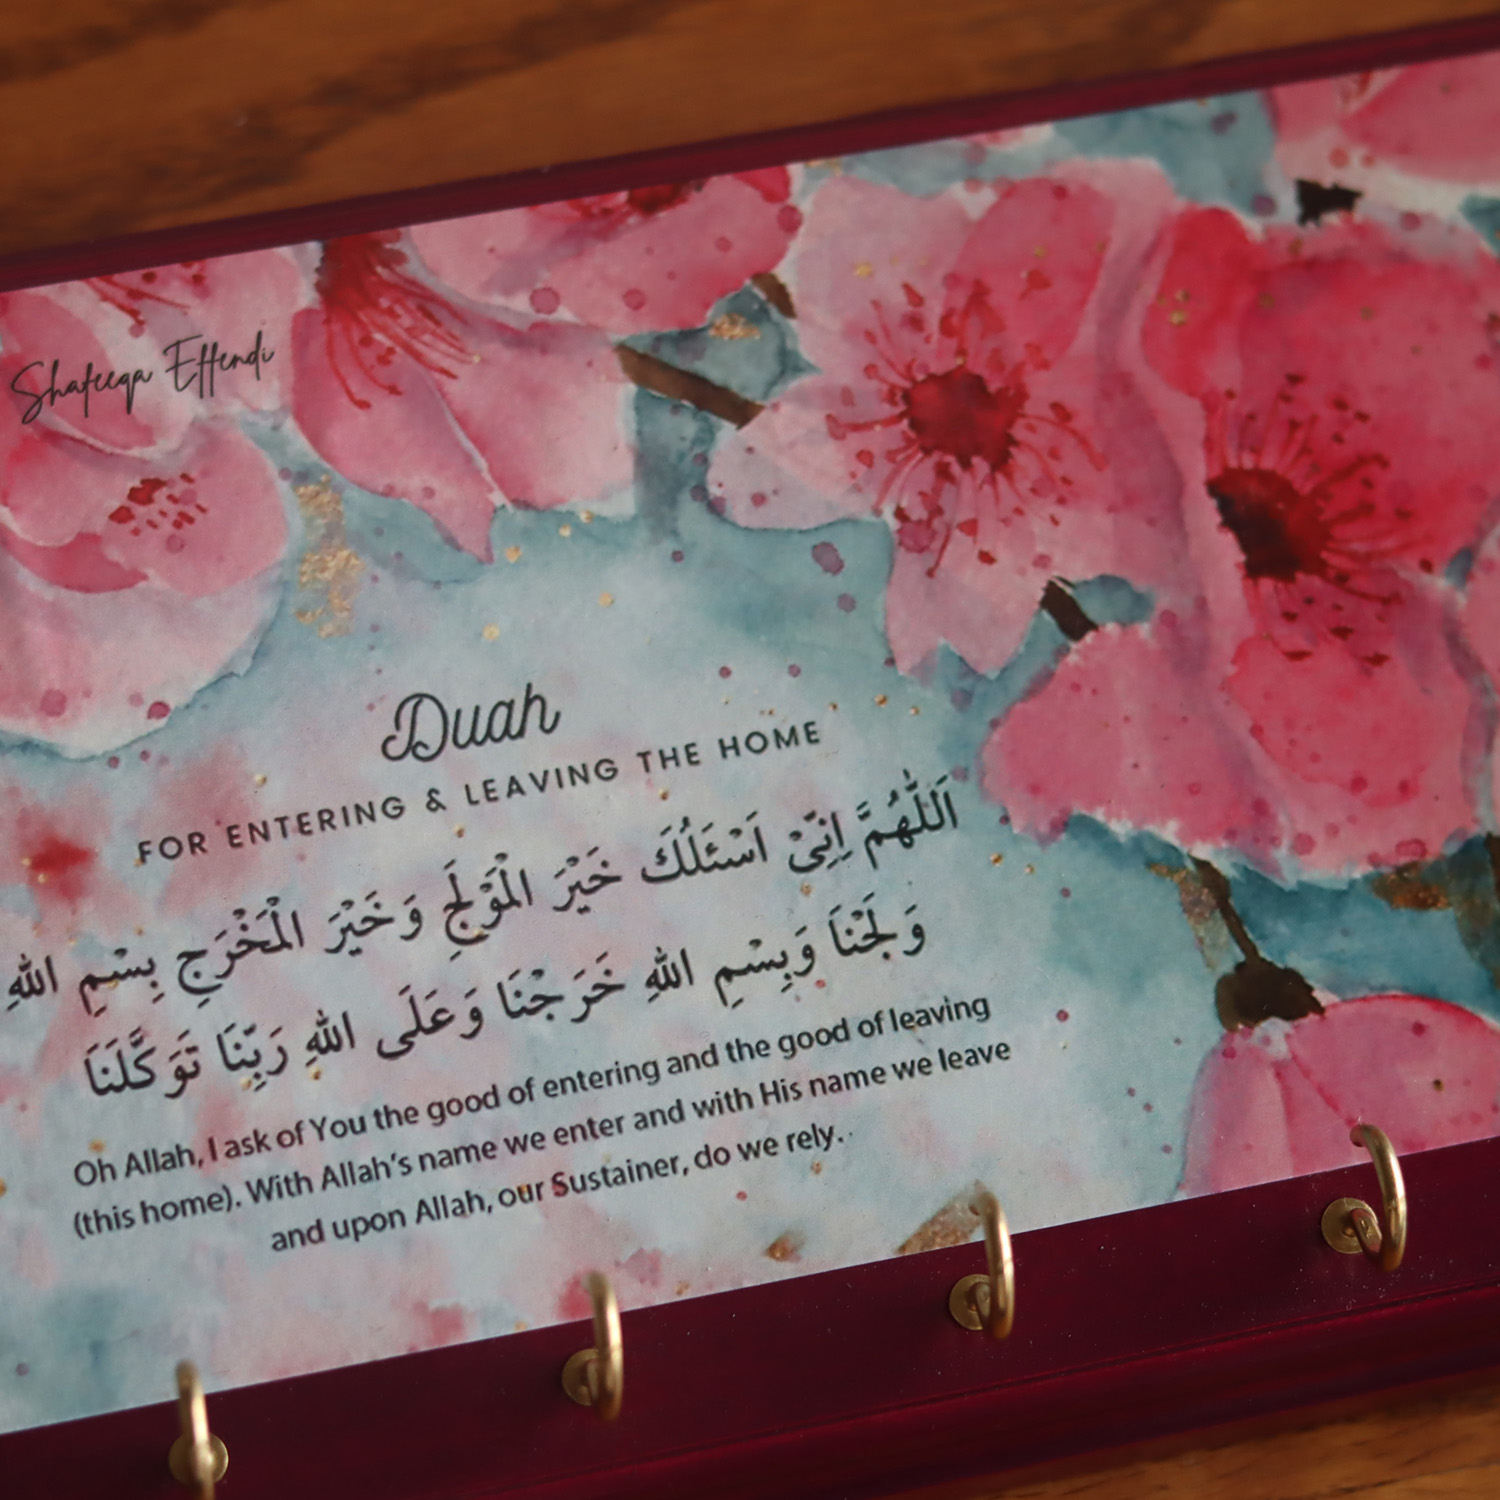 Shafeeqa Effendi
Duah
FOR ENTERING & LEAVING THE HOME
اَللّٰهُمَّ اِنِّىْ اَسْئَلُكَ خَيْرَ الْمَوْلَجِ وَخَيْرَ الْمَخْرَجِ بِسْمِ اللهِ
وَلَجْنَا وَبِسْمِ اللهِ خَرَجْنَا وَعَلَى اللهِ رَبِّنَا تَوَكَّلَنَا
Oh Allah, I ask of You the good of entering and the good of leaving
(this home). With Allah’s name we enter and with His name we leave
and upon Allah, our Sustainer, do we rely.